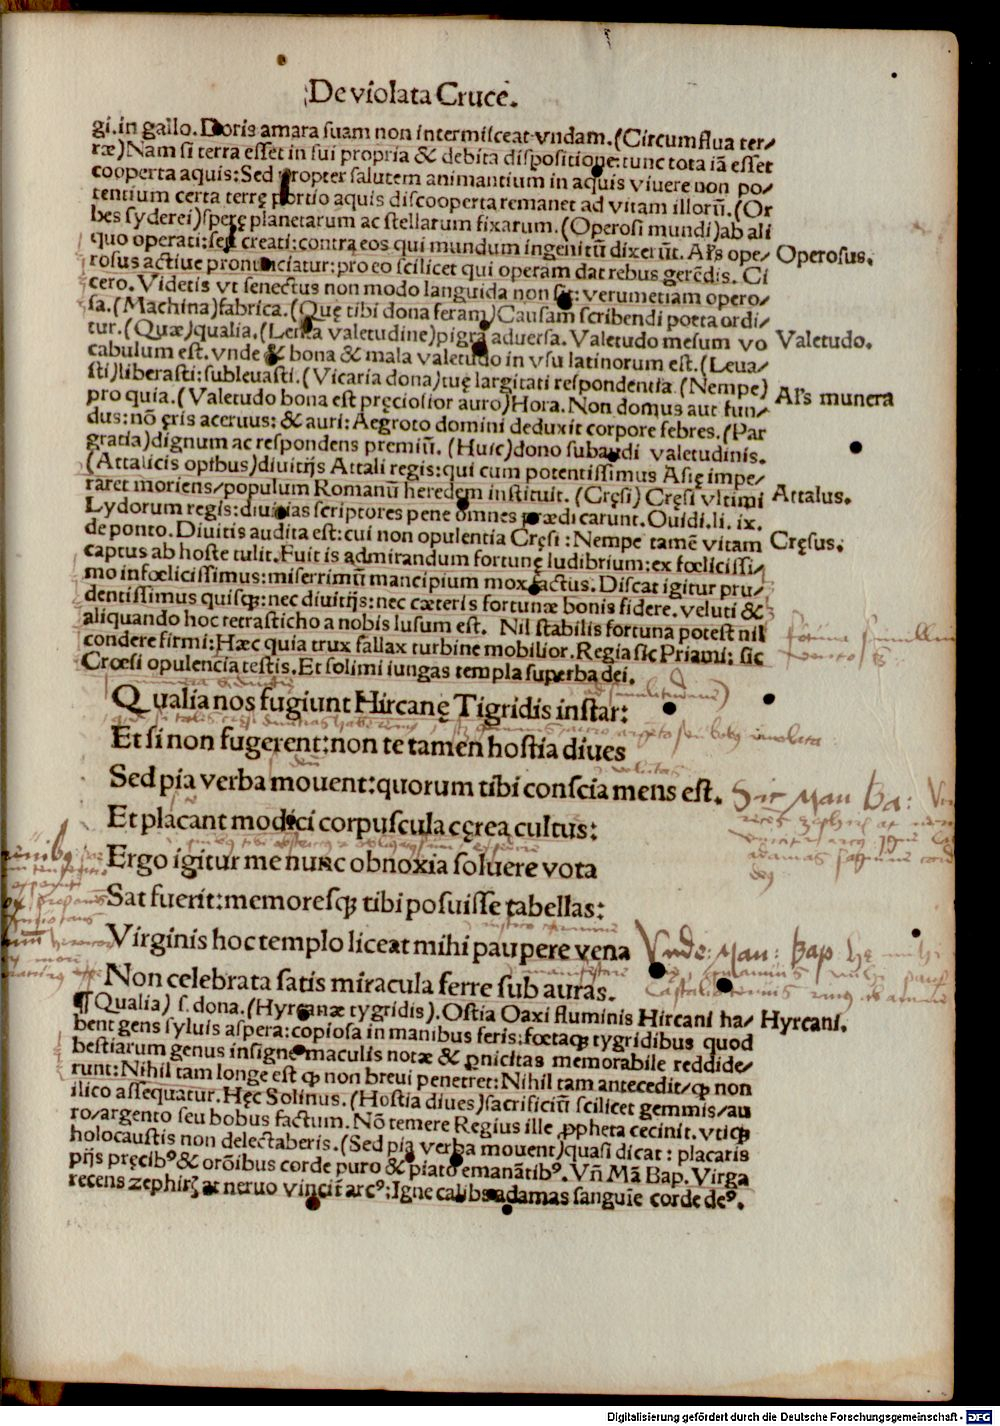 De violata Cruce.
gi. in gallo. Doris amara suam non intermisceat vndam. (Circumflua ter/
ræ) Nam si terra esset in sui propria & debita dispositione: tunc tota iã esset
cooperta aquis: Sed propter salutem animantium in aquis viuere non po/
tentium certa terrę portio aquis discooperta remanet ad vitam illorũ. (Or
bes syderei) sperę planetarum ac stellarum fixarum. (Operosi mundi) ab ali
quo operati: seu creati: contra eos qui mundum ingenitũ dixerũt. Al's ope/
Operosus.
rosus actiue pronunciatur: pro eo scilicet qui operam dat rebus gerẽdis. Ci
cero. Videtis vt senectus non modo languida non sit: verumetiam opero/
sa. (Machina) fabrica. (Quę tibi dona feram) Causam scribendi poeta ordi/
tur. (Quæ) qualia. (Lenta valetudine) pigra aduersa. Valetudo mesum vo
Valetudo.
cabulum est. vnde & bona & mala valetudo in vsu latinorum est. (Leua/
sti) liberasti: subleuasti. (Vicaria dona) tuę largitati respondentia. (Nempe)
pro quia. (Valetudo bona est pręciosior auro) Hora. Non domus aut fun/
Al's munera
dus: nõ ęris aceruus: & auri: Aegroto domini deduxit corpore febres. (Par
gratia) dignum ac respondens premiũ. (Huic) dono subaudi valetudinis.
(Attalicis opibus) diuitijs Attali regis: qui cum potentissimus Asię impe/
raret moriens/ populum Romanũ heredem instituit. (Cręsi) Cręsi vltimi
Attalus.
Lydorum regis: diuitias scriptores pene omnes prædicarunt. Ouidi. li. ix.
de ponto. Diuitis audita est: cui non opulentia Cręsi: Nempe tamẽ vitam
Cręsus.
captus ab hoste tulit. Fuit is admirandum fortunę ludibrium: ex fœlicissi/
mo infœlicissimus: miserrimũ mancipium mox factus. Discat igitur pru/
dentissimus quisqꝫ: nec diuitijs: nec cæteris fortunæ bonis fidere. veluti &
aliquando hoc tetrasticho a nobis lusum est. Nil stabilis fortuna potest nil
condere firmi: Hæc quia trux fallax turbine mobilior. Regia sic Priami: sic
Crœsi opulencia testis. Et solimi iungas templa superba dei.
Qualia nos fugiunt Hircanę Tigridis instar:
Et si non fugerent: non te tamen hostia diues
Sed pia verba mouent: quorum tibi conscia mens est.
Sic Man Ba:
Et placant modici corpuscula cęrea cultus:
Ergo igitur me nunc obnoxia soluere vota
Sat fuerit: memoresqꝫ tibi posuisse tabellas:
Virginis hoc templo liceat mihi paupere vena
Vnde: Man: Bap.
Non celebrata satis miracula ferre sub auras.
¶ Qualia) s. dona. (Hyrcanæ tygridis). Ostia Oaxi fluminis Hircani ha/
Hyrcani.
bent gens syluis aspera: copiosa in manibus feris: fœtaqꝫ tygridibus quod
bestiarum genus insigne maculis notæ & ꝑnicitas memorabile reddide/
runt: Nihil tam longe est qꝫ non breui penetret: Nihil tam antecedit/ qꝫ non
ilico assequatur. Hęc Solinus. (Hostia diues) sacrificiũ scilicet gemmis/ au
ro/ argento seu bobus factum. Nõ temere Regius ille ꝓpheta cecinit. vtiqꝫ
holocaustis non delectaberis. (Sed pia verba mouent) quasi dicat: placaris
pijs pręcibꝰ & orõibus corde puro & piato emanãtibꝰ. Vñ Mã Bap. Virga
recens zephirꝫ at neruo vincit̃ arcꝰ: Igne calibs adamas sanguie corde deꝰ.
Digitalisierung gefördert durch die Deutsche Forschungsgemeinschaft - DFG